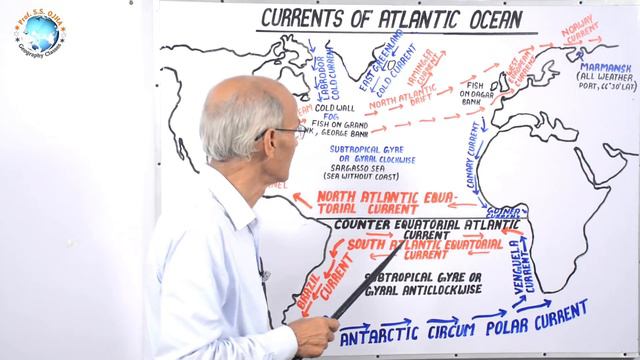 Prof. S.S. OJHA
Geography Classes
CURRENTS OF ATLANTIC OCEAN
NORWAY
CURRENT
LABRODOR
COLD CURRENT
EAST GREENLAND
COLD CURRENT
CURRENT
MARMANSK
(ALL WEATHER
PORT, 66°30'LAT)
FISH
ON DAGAR
BANK
COLD WALL
FOG
FISH ON GRAND
GEORGE BANK
NORTH ATLANTIC
DRIFT
CANARY CURRENT
SUBTROPICAL GYRE
OR GYRAL CLOCKWISE
SARGASSO SEA
(SEA WITHOUT COAST)
NORTH ATLANTIC EQUA-
TORIAL CURRENT
COUNTER EQUATORIAL ATLANTIC
CURRENT
SOUTH ATLANTIC EQUATORIAL
CURRENT
BRAZIL
CURRENT
VENGUELA
CURRENT
SUBTROPICAL GYRE OR
GYRAL ANTICLOCKWISE
ANTARCTIC CIRCUM POLAR CURRENT